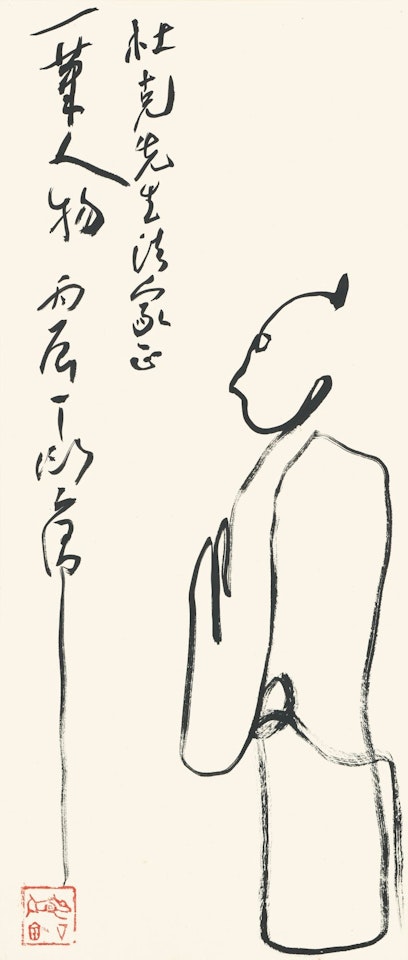 杜克先生法家正
一筆人物 丙辰丁衍庸